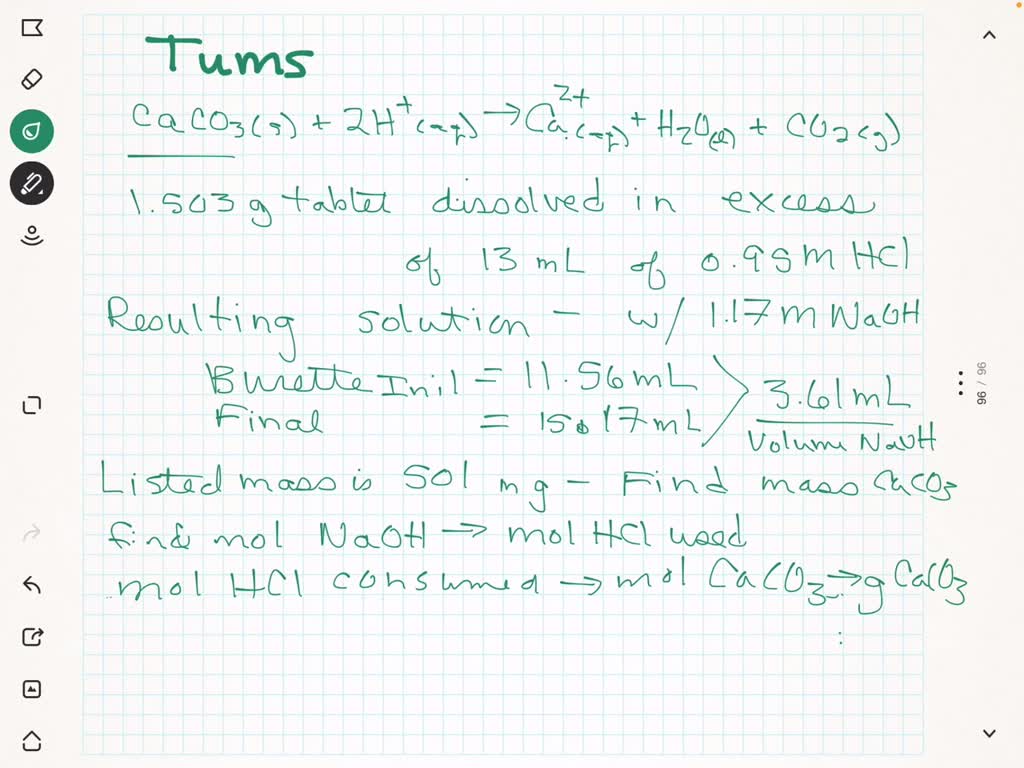 Tums
CaCO3(s) + 2H+(aq) → Ca2+(aq) + H2O(l) + CO2(g)
1.503 g tablet dissolved in excess
of 13 mL of 0.95M HCl
Resulting solution - w/ 1.17M NaOH
Burette Inil = 11.56mL
Final = 15.17mL
3.61mL
Volume NaOH
Listed mass is 501 mg - Find mass CaCO3
find mol NaOH → mol HCl used
mol HCl consumed → mol CaCO3 → g CaCO3
96 / 96